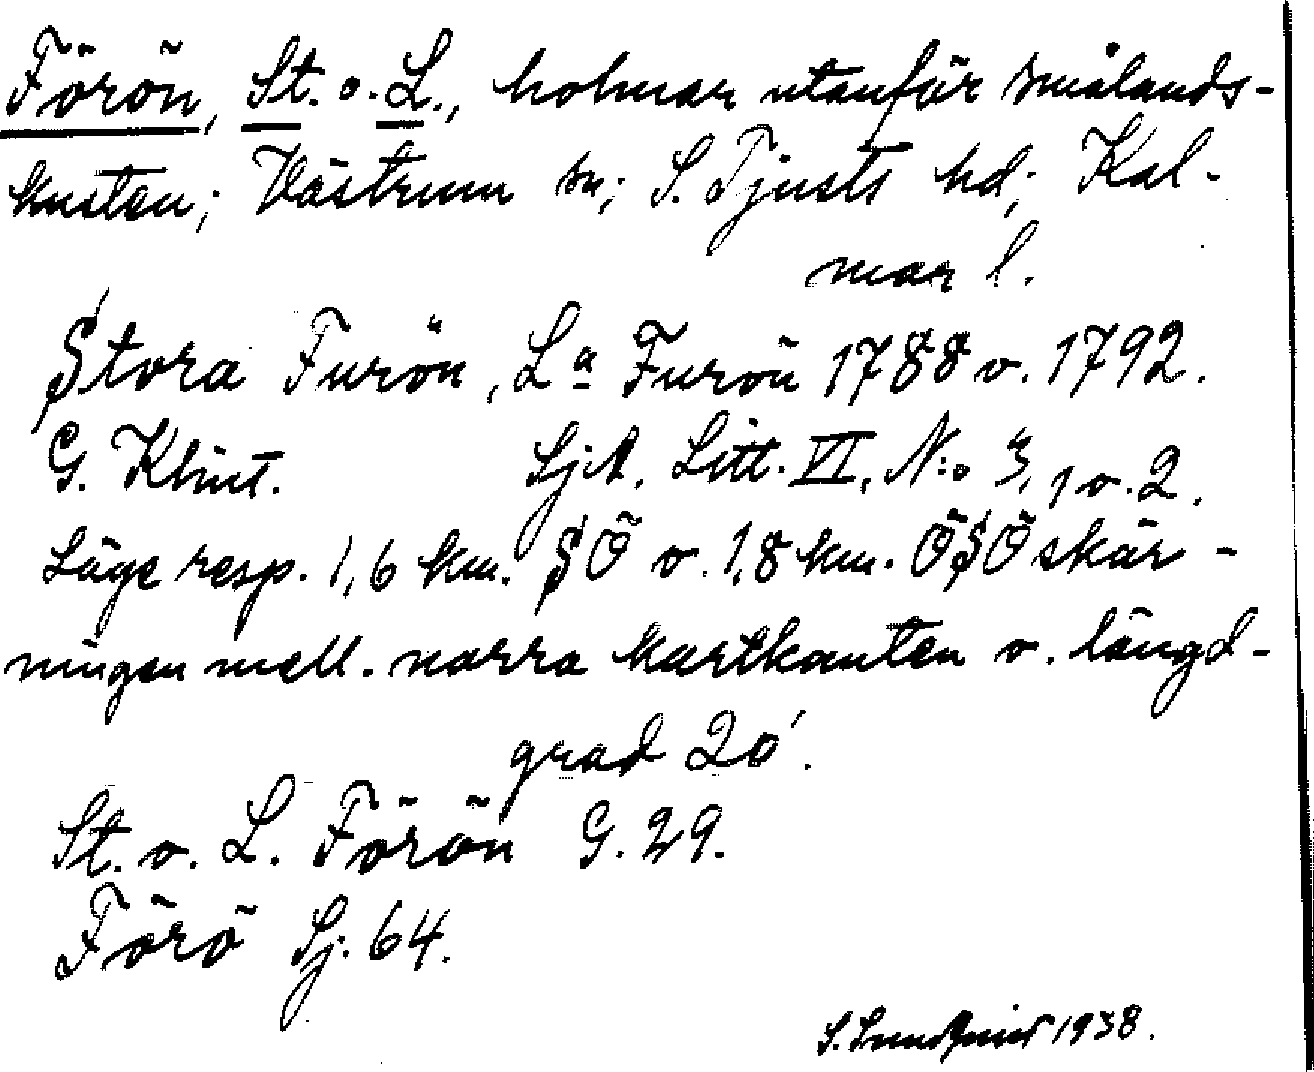 Förön, St. o. L., holmar utanför smålands-
kusten; Västrum sn; S. Tjusts hd; Kal-
mar l.
Stora Furön, La Furön 1788 o. 1792.
G. Klint. SjA. Litt. VI, N:o 3, 1 o. 2.
Läge resp. 1,6 km. SÖ o. 1,8 km. ÖSÖ skär-
ningen mell. norra kartkanten o. längd-
grad 20'.
St. o. L. Förön G. 29.
Förö Sj. 64.
S. Lundquist 1938.